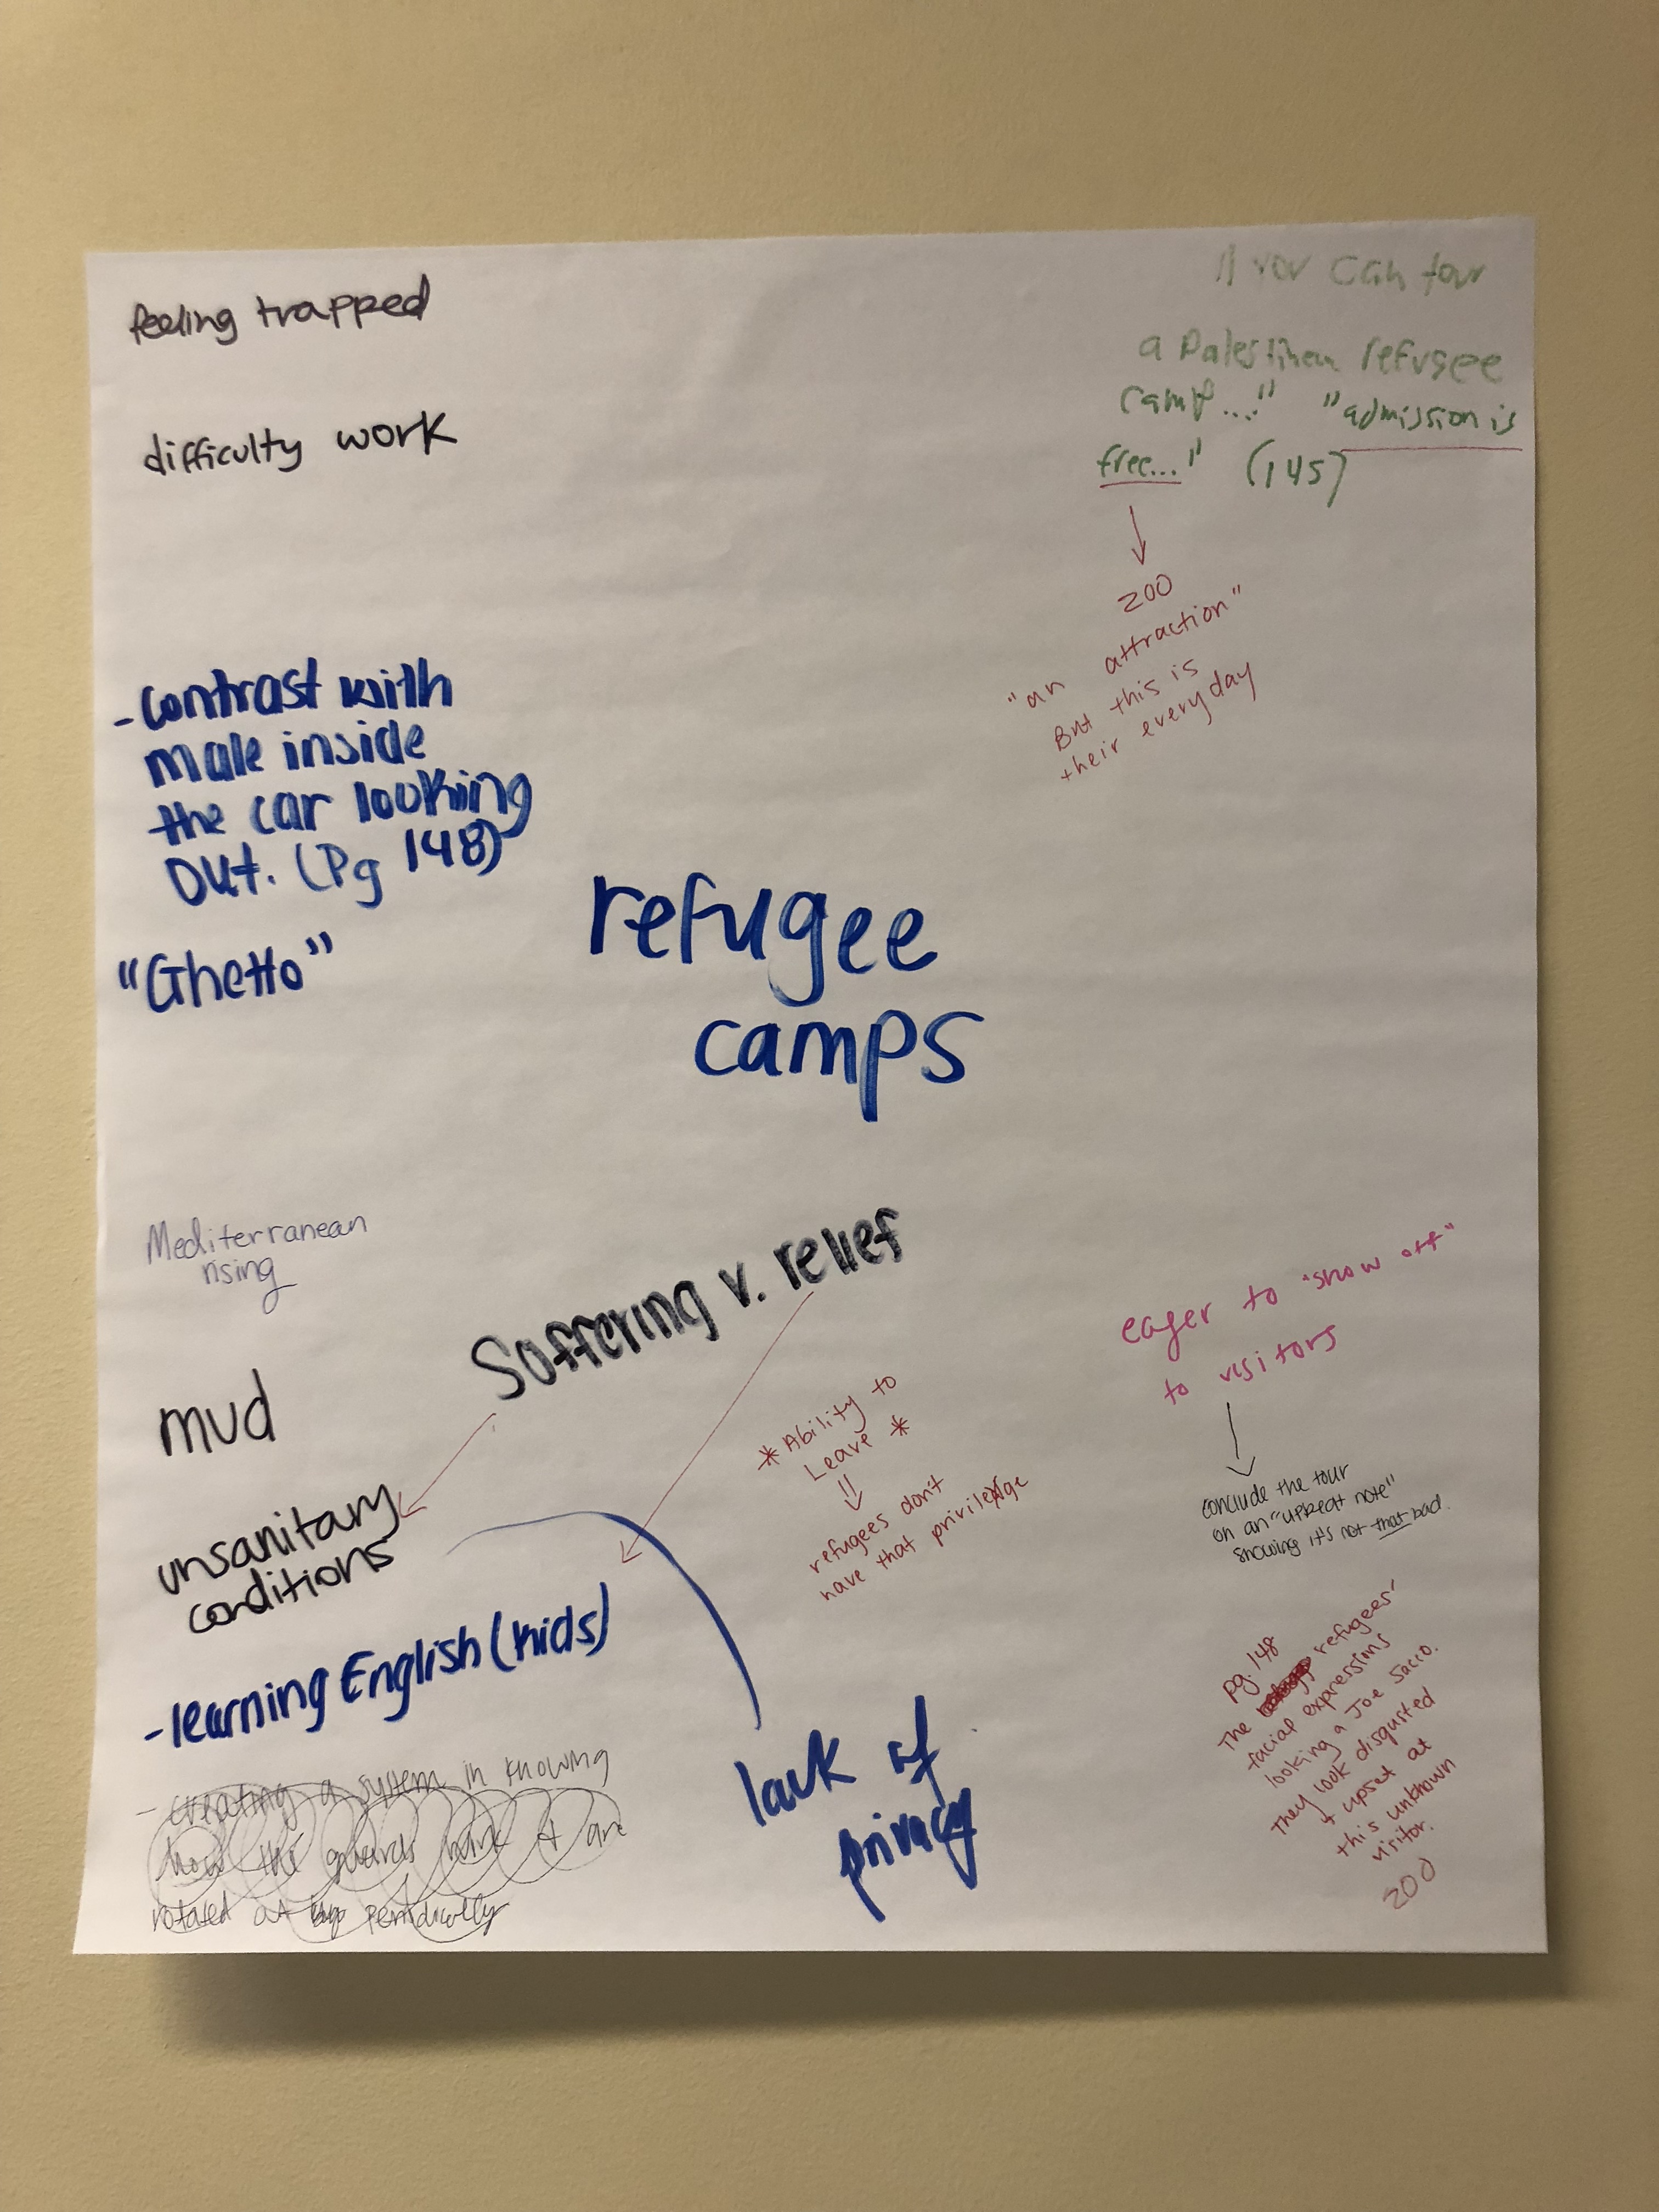 feeling trapped
difficulty work
" You can tour
a Palestinean refugee
camp...." "admission is
free..." (145)
200
"an attraction"
But this is
their everyday
- contrast with
male inside
the car looking
out. (Pg 148)
"Ghetto"
refugee
camps
Mediterranean
rising
Suffering v. relief
mud
unsanitary
conditions
- learning English (kids)
- creating a system in knowing
how the guards work & are
rotated at periodically
* Ability to
Leave *
refugees don't
have that priviledge
lack of
privacy
eager to "show off"
to visitors
conclude the tour
on an "upbeat note"
showing it's not that bad.
pg. 148
The refugees'
facial expressions
looking a Joe Sacco.
They look disgusted
+ upset at
this unknown
visitor.
200